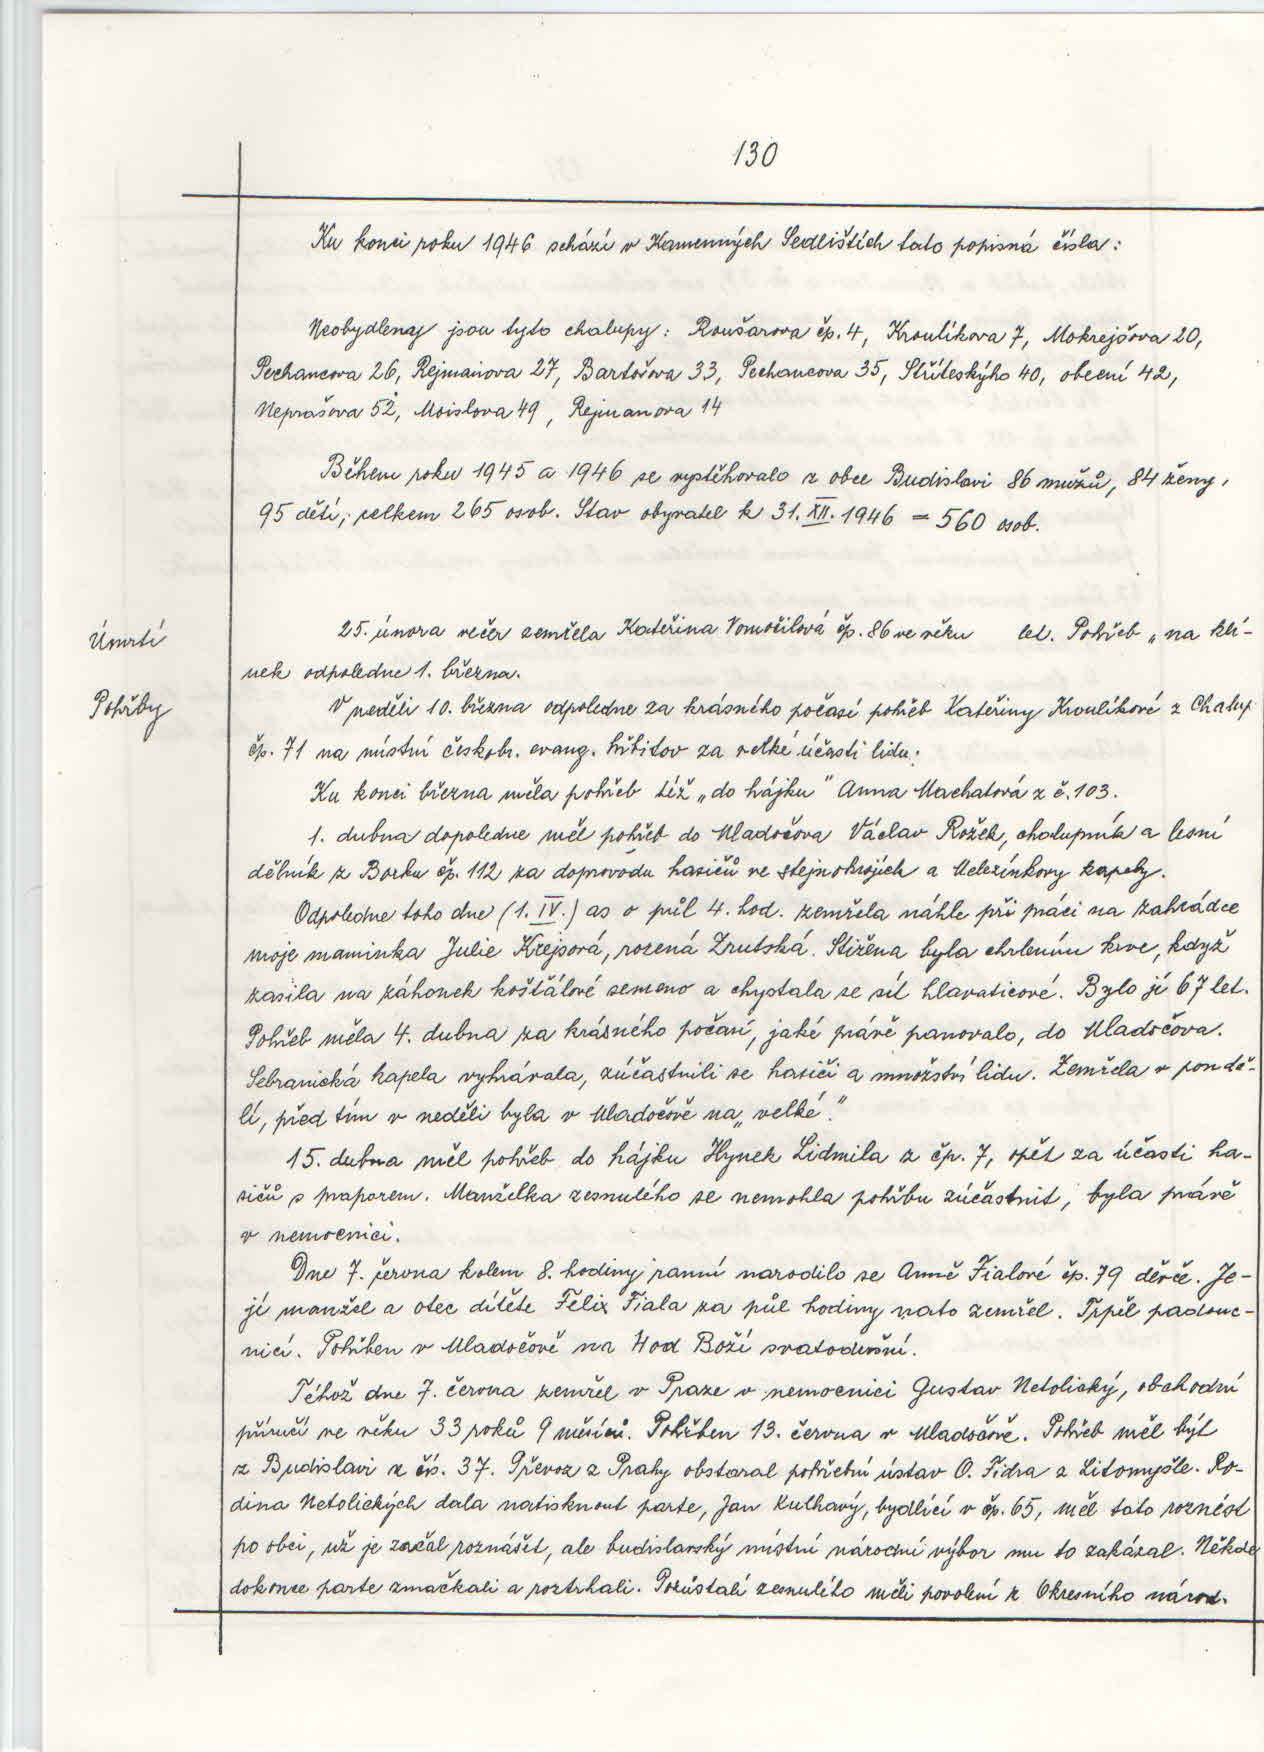 130
Ku konci roku 1946 schází v Kamenných Sedlištích tato popisná čísla:
Neobydleny jsou tyto chalupy: Roušarova čp. 4, Kroulíkova 7, Mokrejšova 20,
Pechancova 26, Rejmanova 27, Bartošova 33, Pechancova 35, Stříteskýho 40, obecní 42,
Neprašova 52, Moislova 49, Rejmanova 14
Během roku 1945 a 1946 se vystěhovalo z obce Budislavi 86 mužů, 84 ženy,
95 dětí, celkem 265 osob. Stav obyvatel k 31. XII. 1946 = 560 osob.
Úmrtí
25. února večer zemřela Kateřina Vomočilová čp. 86 ve věku let. Pohřeb „na klí-
nek odpoledne 1. března.
Pohřby
V neděli 10. března odpoledne za krásného počasí pohřeb Kateřiny Kroulíkové z Chalup
čp. 71 na místní českobr. evang. hřbitov za velké účasti lidu.
Ku konci března měla pohřeb též „do hájku" Anna Machatová z č. 103.
1. dubna dopoledne měl pohřeb do Mladočova Václav Rožek, chalupník a lesní
dělník z Borku čp. 112 za doprovodu hasičů ve stejnokrojích a Melezínkovy kapely.
Odpoledne toho dne (1. IV.) as o půl 4. hod. zemřela náhle při práci na zahrádce
moje maminka Julie Krejsová, rozená Zrutská. Stižena byla chrlením krve, když
zasila na záhonek košťálové semeno a chystala se sít hlavaticové. Bylo jí 67 let.
Pohřeb měla 4. dubna za krásného počasí, jaké právě panovalo, do Mladočova.
Sebranická kapela vyhrávala, zúčastnili se hasiči a množství lidu. Zemřela v pondě-
lí, před tím v neděli byla v Mladočově na „velké."
15. dubna měl pohřeb do hájku Hynek Lidmila z čp. 7, opět za účasti ha-
sičů s praporem. Manželka zesnulého se nemohla pohřbu zúčastnit, byla právě
v nemocnici.
Dne 7. června kolem 8. hodiny ranní narodilo se Anně Fialové čp. 79 děvče. Je-
jí manžel a otec dítěte Felix Fiala za půl hodiny nato zemřel. Trpěl padouc-
nicí. Pohřben v Mladočově na Hod Boží svatodušní.
Téhož dne 7. června zemřel v Praze v nemocnici Gustav Netolický, obchodní
příručí ve věku 33 roků 9 měsíců. Pohřben 13. června v Mladočově. Pohřeb měl být
z Budislavi z čís. 37. Převoz z Prahy obstaral pohřební ústav O. Fidra z Litomyšle. Ro-
dina Netolických dala natisknout parte, Jan Kulhavý, bydlící v čp. 65, měl tato roznést
po obci, už je začal roznášet, ale budislavský místní národní výbor mu to zakázal. Někde
dokonce parte zmačkali a roztrhali. Pozůstalí zesnulého měli povolení z Okresního národ.